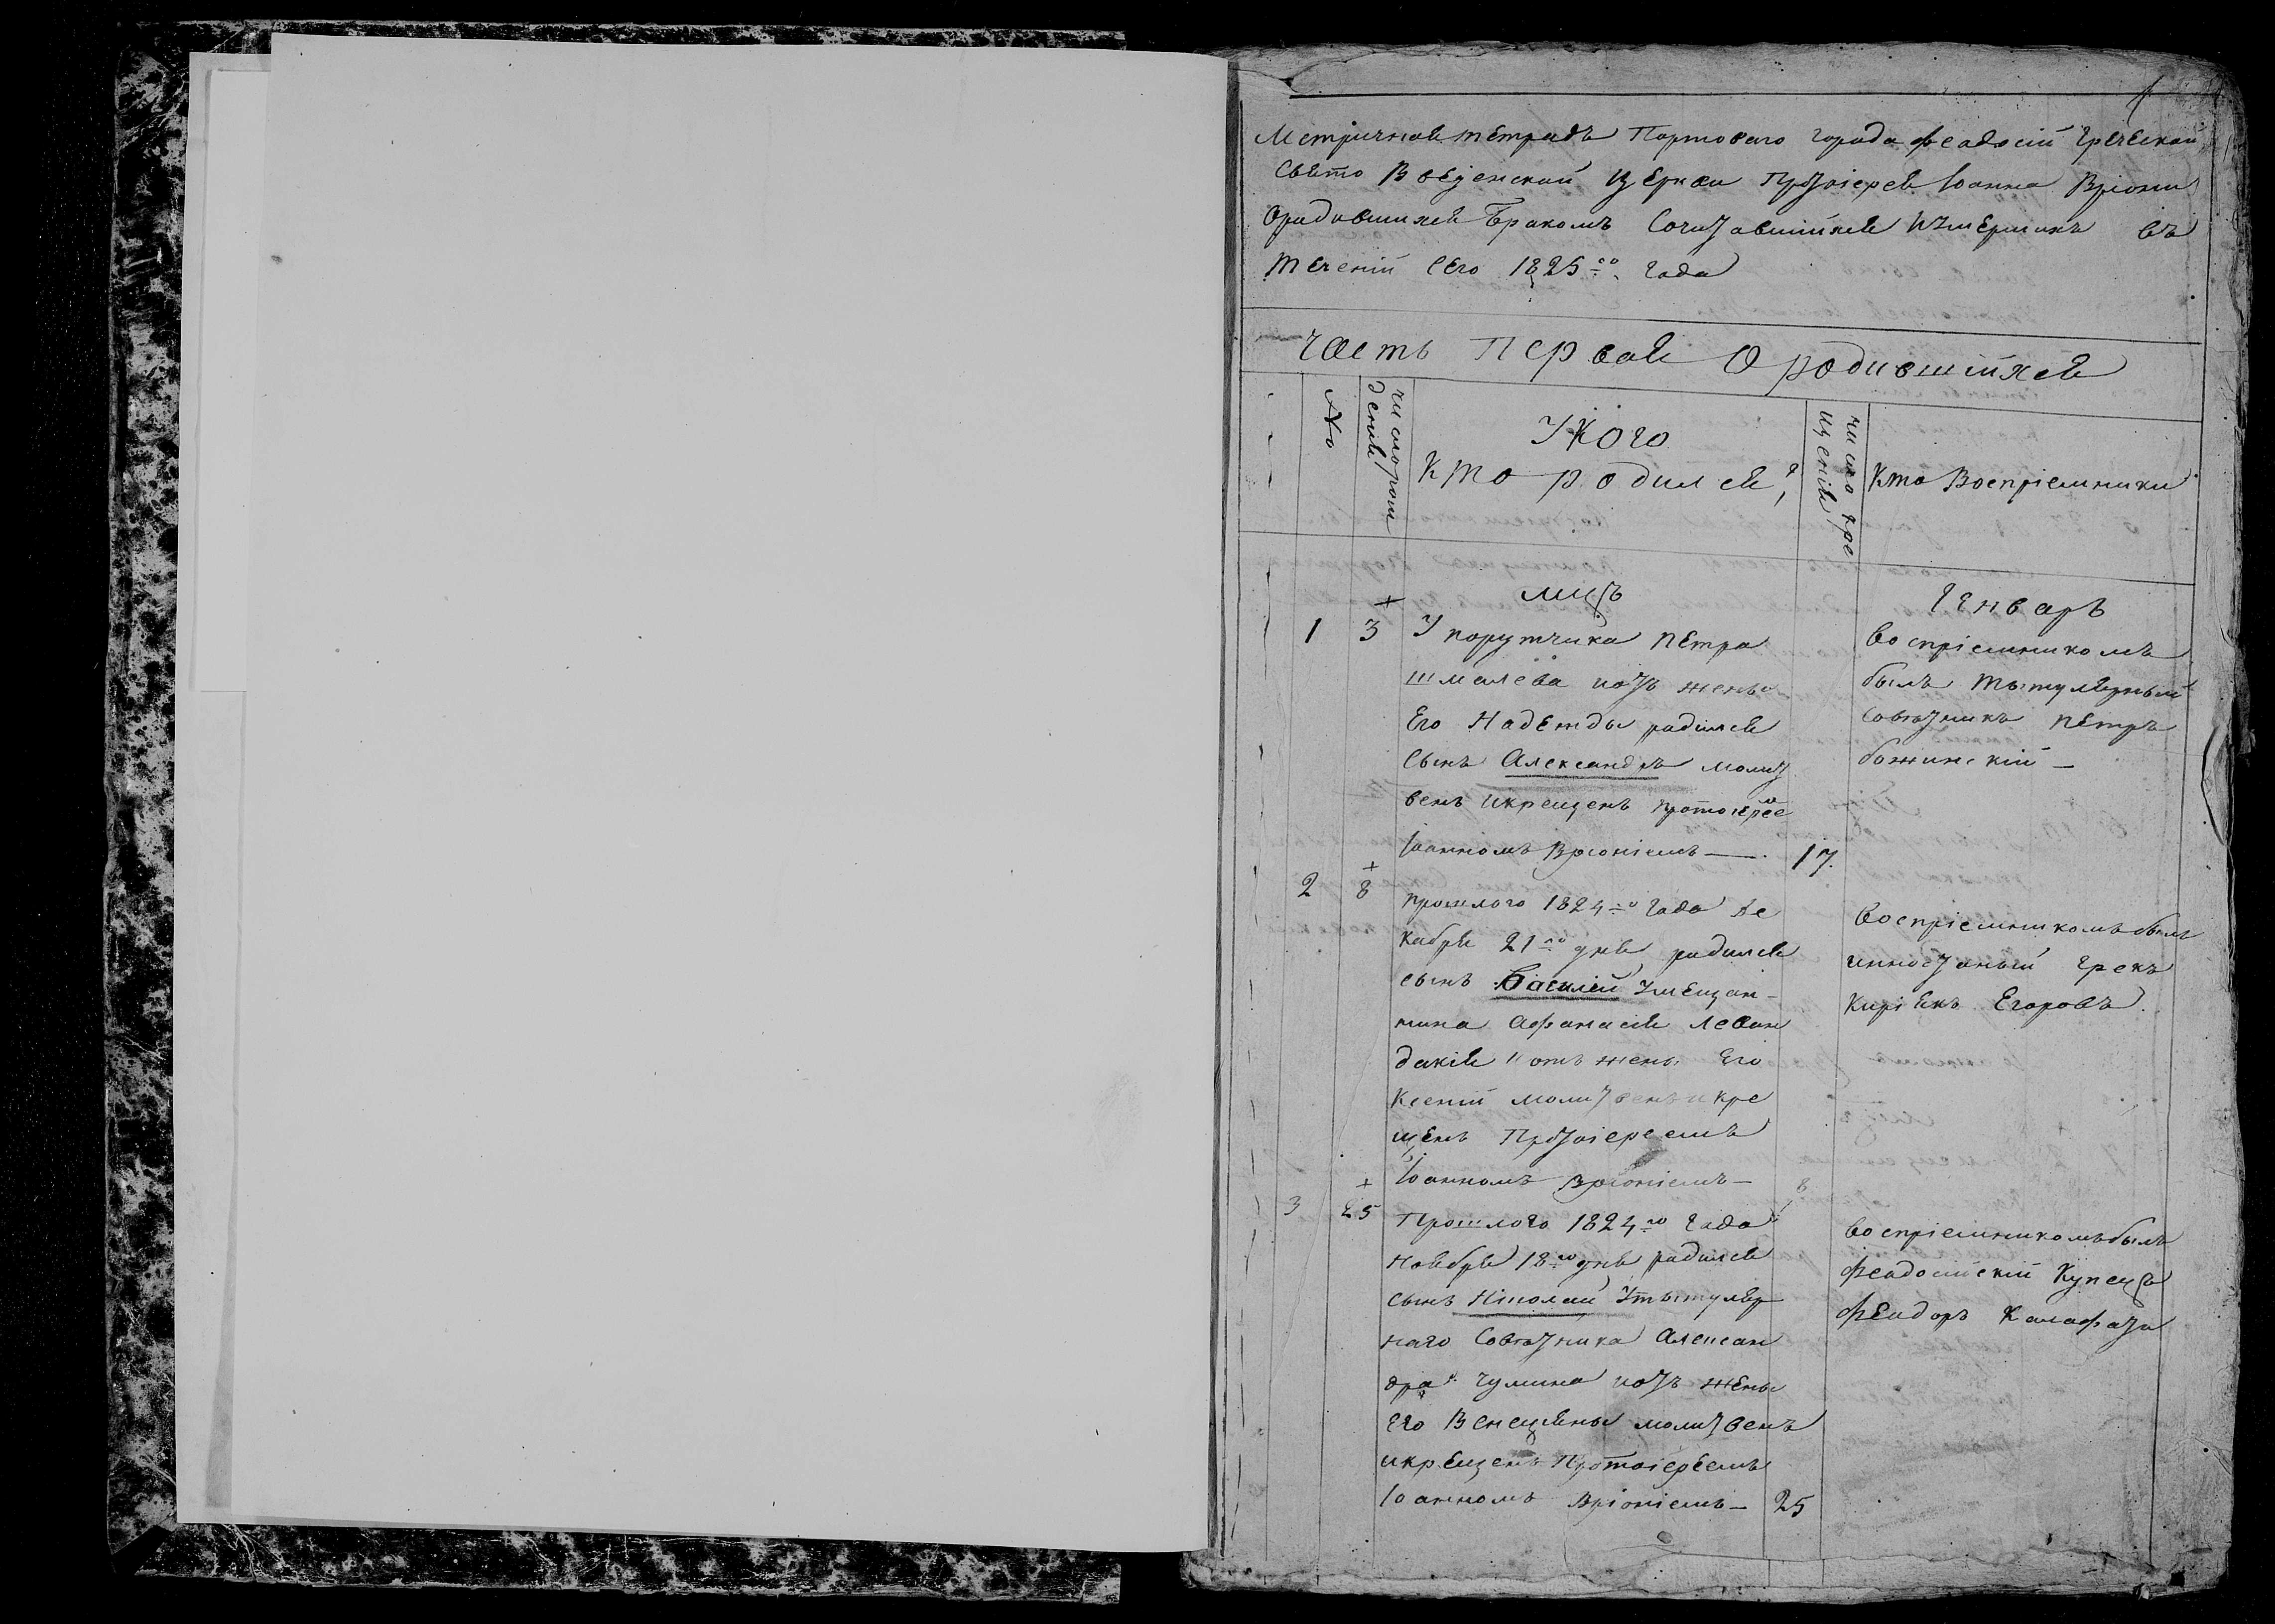 Метричная тетрадь Портоваго города Феадосіи Греческой
Свято Введенской Церкви Протоіерея Іоанна Вріони
Ородившихся Бракомъ Сочитавшійхся Иумершихъ въ
теченіи сего 1825го года
Часть первая О родившійхся
№
число рож
денія
У кого
кто родился,
число кре
щенія
Кто Воспріемники
мцъ
Генварь
1
3
У порутчика Петра
Шмалёва иотъ жены
Его Надежды радился
Сынъ Александръ молит
венъ икрещенъ протоіерее
м
Іоанномъ Вріоніемъ —
17.
воспріемникомъ
былъ тытулярный
Совѣтникъ Петръ
божинскій —
2
8
прошлого 1824го Года де
кабря 21го дня радился
сынъ Василій Умещан-
тина Афанасія Леван
дакія и отъ жены Его
Ксеніи молитвенъ икре
щенъ Протоіереемъ
Іоанномъ Вріоніемъ —
8
Воспріемникомъ былъ
инностраный грекъ
Киріякъ Егоровъ.
3
25
Прошлого 1824го Года
Ноября 18го дня радился
сынъ Николай Утытуляр
наго Совѣтника Алексан
дра Чумина иотъ жены
Его Венецияны молитвенъ
икрещенъ Протоіереемъ
Іоанномъ Вріоніемъ —
25
воспріемникомъ былъ
Феадосійскій Купецъ
Феадоръ Калафати